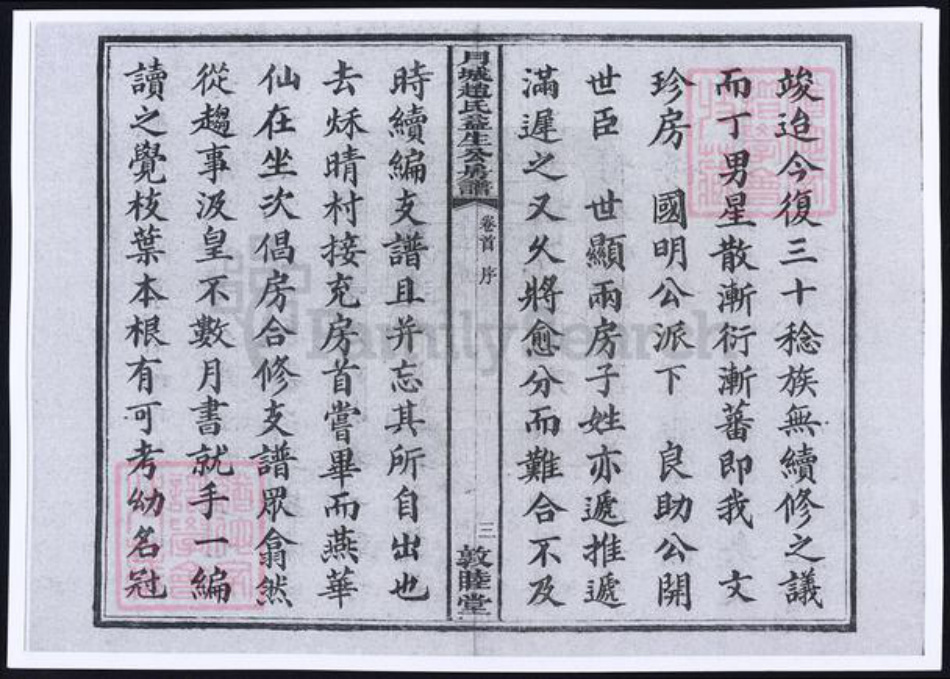 竣迨今復三十稔族無續修之議
而丁男星散漸衍漸蕃即我 文
珍房 國明公派下 良助公開
世臣 世顯兩房子姓亦遞推遞
滿遲之又久將愈分而難合不及
月城趙氏益生公房譜
卷首 序
三
敦睦堂
時續編支譜且并忘其所自出也
去秌晴村接充房首嘗畢而燕華
仙在坐次倡房合修支譜眾翕然
從趨事汲皇不數月書就手一編
讀之覺枝葉本根有可考幼名冠
FamilySearch